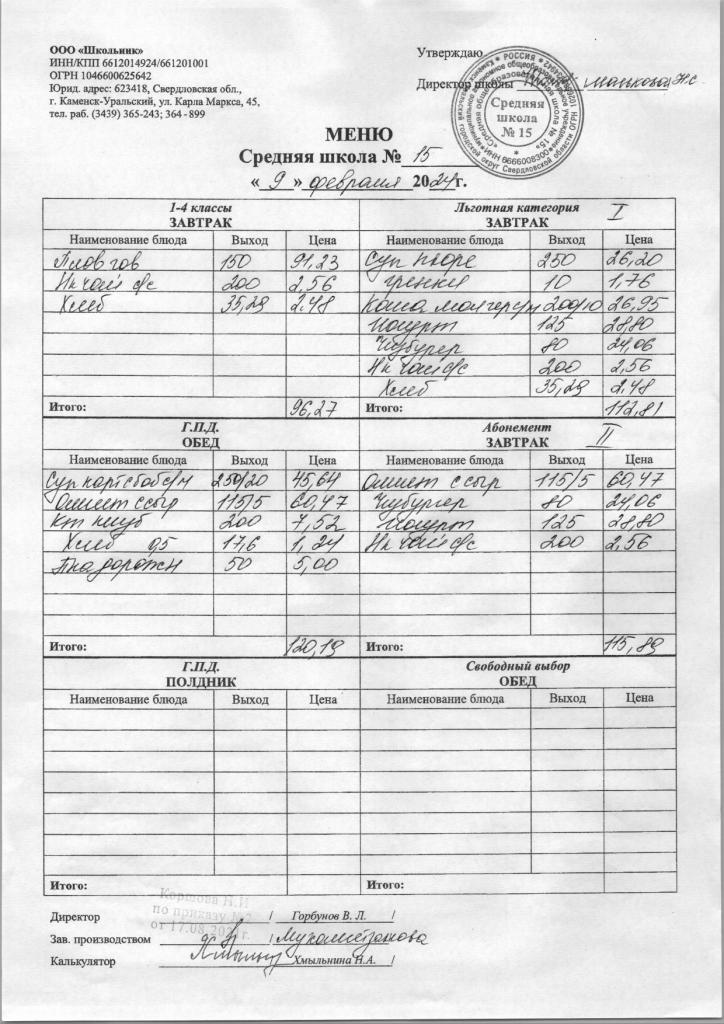 ООО «Школьник»
ИНН/КПП 6612014924/661201001
ОГРН 1046600625642
Юрид. адрес: 623418, Свердловская обл.,
г. Каменск-Уральский, ул. Карла Маркса, 45,
тел. раб. (3439) 365-243; 364 - 899
Утверждаю
Директор школы
РОССИЯ
Средняя
школа
№ 15
МЕНЮ
Средняя школа № 15
« 9 » февраля 2024г.
1-4 классы
ЗАВТРАК
Наименование блюда Выход Цена
Плов гов 150 91,23
Нк чай с/с 200 2,56
Хлеб 35,29 2,48
Итого: 96,27
Льготная категория I
ЗАВТРАК
Наименование блюда Выход Цена
Суп пюре 250 26,20
гренки 10 1,76
Каша 200/10 26,95
Йогурт 125 28,80
Чизбургер 80 24,06
Нк чай с/с 200 2,56
Хлеб 35,29 2,48
Итого: 112,81
Г.П.Д.
ОБЕД
Наименование блюда Выход Цена
Суп карт с боб с/м 250/20 45,64
Омлет с сыр 115/5 60,47
Кт клуб 200 7,52
Хлеб 0,5 17,6 1,24
П на дорожн 50 5,00
Итого: 120,19
Абонемент II
ЗАВТРАК
Наименование блюда Выход Цена
Омлет с сыр 115/5 60,47
Чизбургер 80 24,06
Йогурт 125 28,80
Нк чай с/с 200 2,56
Итого: 115,89
Г.П.Д.
ПОЛДНИК
Наименование блюда Выход Цена
Итого:
Свободный выбор
ОБЕД
Наименование блюда Выход Цена
Итого:
Коршова Н.И
по приказу №2
от 17.08.2021г.
Директор / Горбунов В. Л. /
Зав. производством / Мухаметзянова
Калькулятор / Хмыльнина Н.А. /